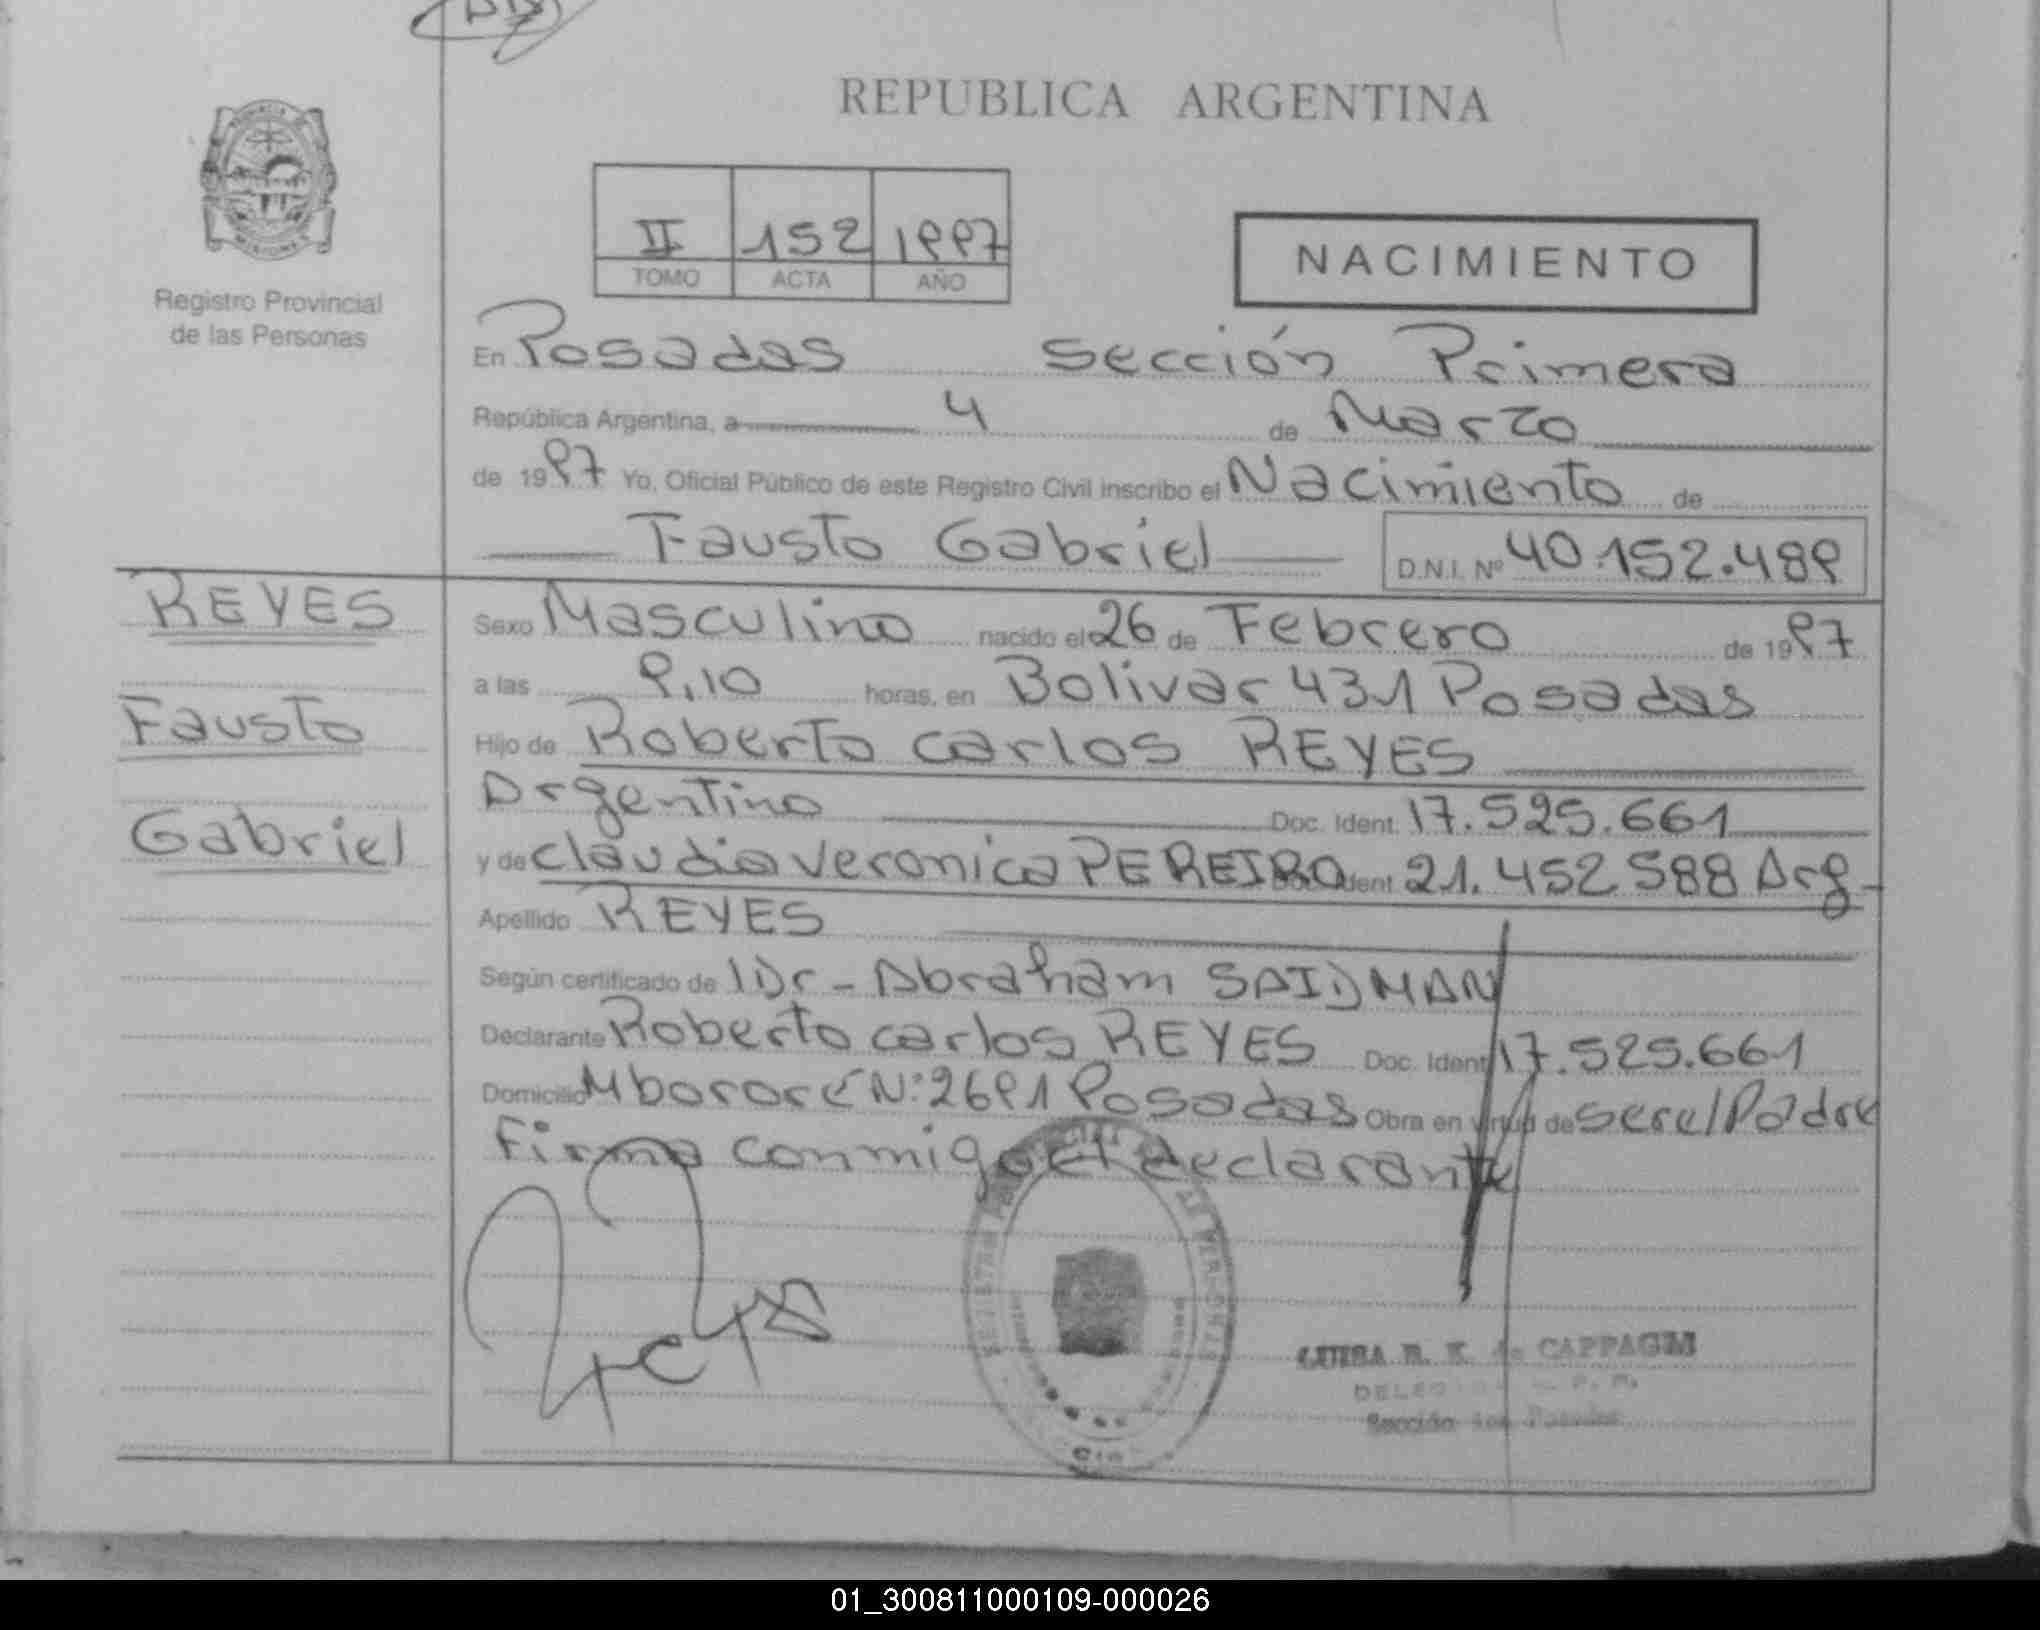 REPUBLICA ARGENTINA
Registro Provincial
de las Personas
II 152 1997
TOMO ACTA AÑO
NACIMIENTO
En Posadas Sección Primera
República Argentina, a 4 de Marzo
de 1997 Yo, Oficial Público de este Registro Civil inscribo el Nacimiento de
Fausto Gabriel D.N.I. Nº 40.152.489
REYES
Fausto
Gabriel
Sexo Masculino nacido el 26 de Febrero de 1997
a las 9,10 horas, en Bolivar 431 Posadas
Hijo de Roberto Carlos REYES
Argentino Doc. Ident. 17.525.661
y de Claudia Veronica PEREIRO Doc. Ident 21.452.588 Arg.
Apellido REYES
Según certificado de Dr - Abraham SAIDMAN
Declarante Roberto Carlos REYES Doc. Ident 17.525.661
Domicilio Mbororé Nº: 2691 Posadas Obra en virtud de ser el Padre
Firma conmigo el declarante
Reyes
R. K. de CAPPAGLI
Sección 1ra Posadas
01_300811000109-000026